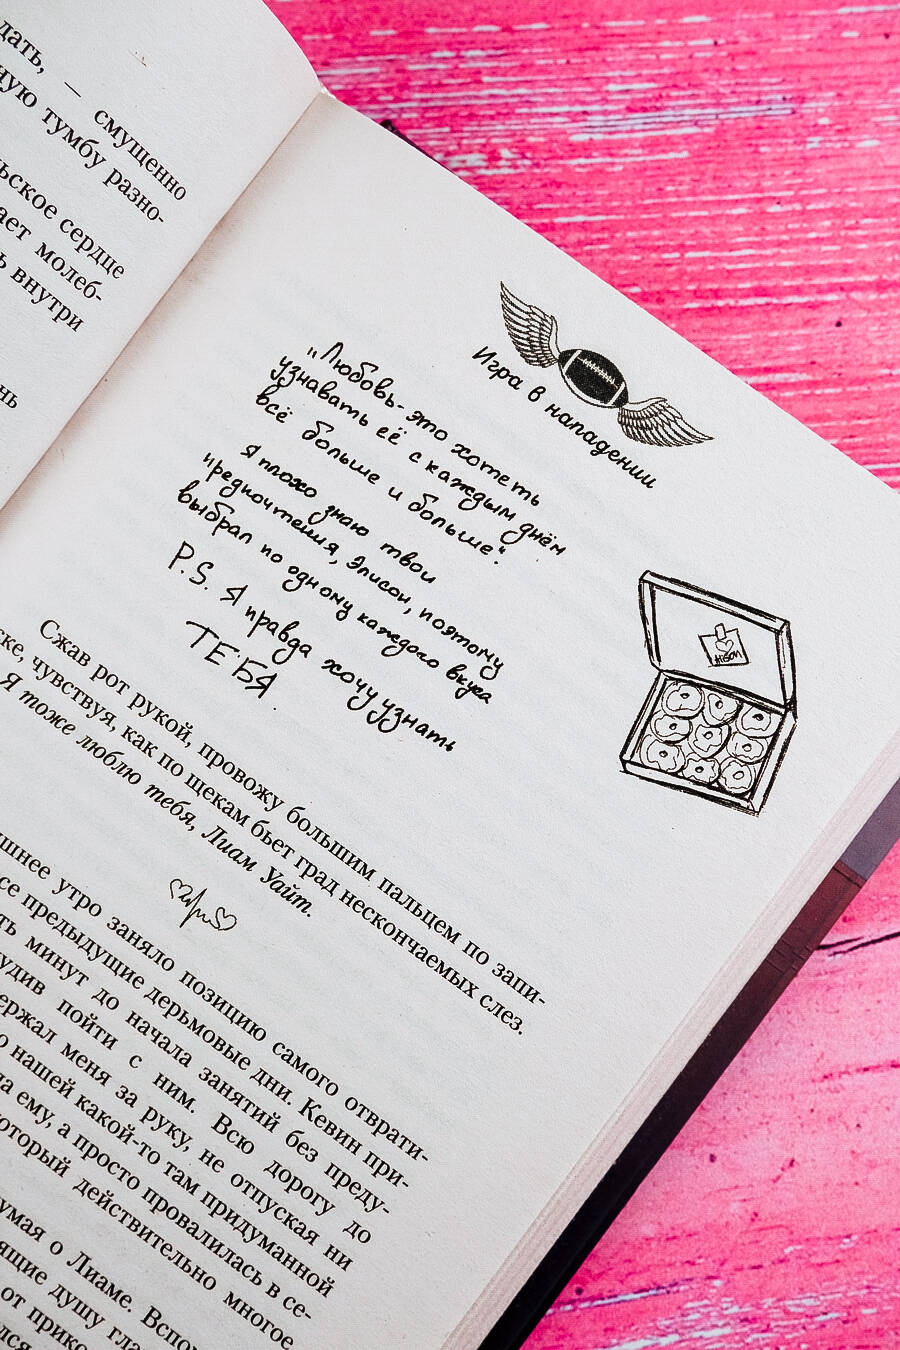 дать, — смущенно
тумбу разно-
сердце
молеб-
внутри
Игра в нападении
„Любовь - это хотеть
узнавать её с каждым днём
всё больше и больше".
Я плохо знаю твои
предпочтения, Элисон, поэтому
выбрал по одному каждого вкуса
P.S. Я правда хочу узнать
ТЕБЯ.
Alison
Сжав рот рукой, провожу большим пальцем по запи-
ске, чувствуя, как по щекам бьет град нескончаемых слез.
Я тоже люблю тебя, Лиам Уайт.
утро заняло позицию самого отврати-
предыдущие дерьмовые дни. Кевин при-
минут до начала занятий без преду-
пойти с ним. Всю дорогу до
меня за руку, не отпуская ни
нашей какой-то там придуманной
ему, а просто провалилась в се-
который действительно многое
о Лиаме.
душу
от